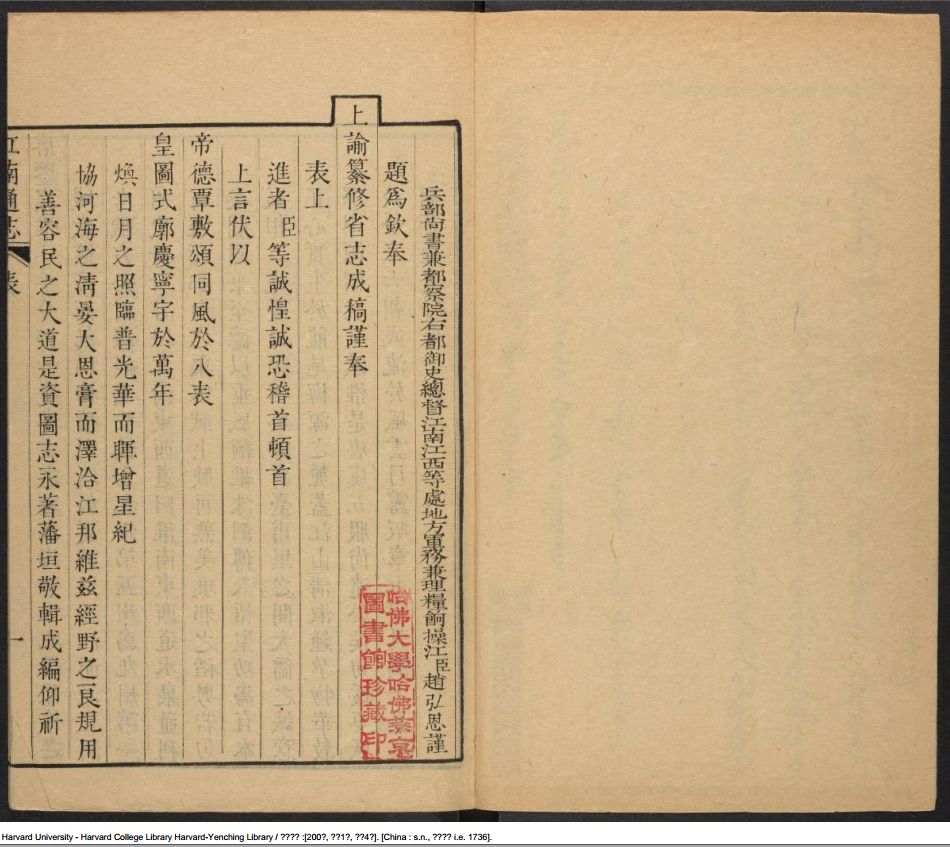 兵部尚書兼都察院右都御史總督江南江西等處地方軍務兼理糧餉操江臣趙弘恩謹
題爲欽奉
上諭纂修省志成稿謹奉
表上
進者臣等誠惶誠恐稽首頓首
上言伏以
帝德覃敷頌同風於八表
皇圖式廓慶寧宇於萬年
煥日月之照臨普光華而暉增星紀
協河海之淸晏大恩膏而澤洽江邦維兹經野之良規用
善容民之大道是資圖志永著藩垣敬輯成編仰祈
江南通志 表 一
哈佛大學哈佛燕京
圖書館珍藏印
Harvard University - Harvard College Library Harvard-Yenching Library / ???? :[200?, ??1?, ??4?]. [China : s.n., ???? i.e. 1736].